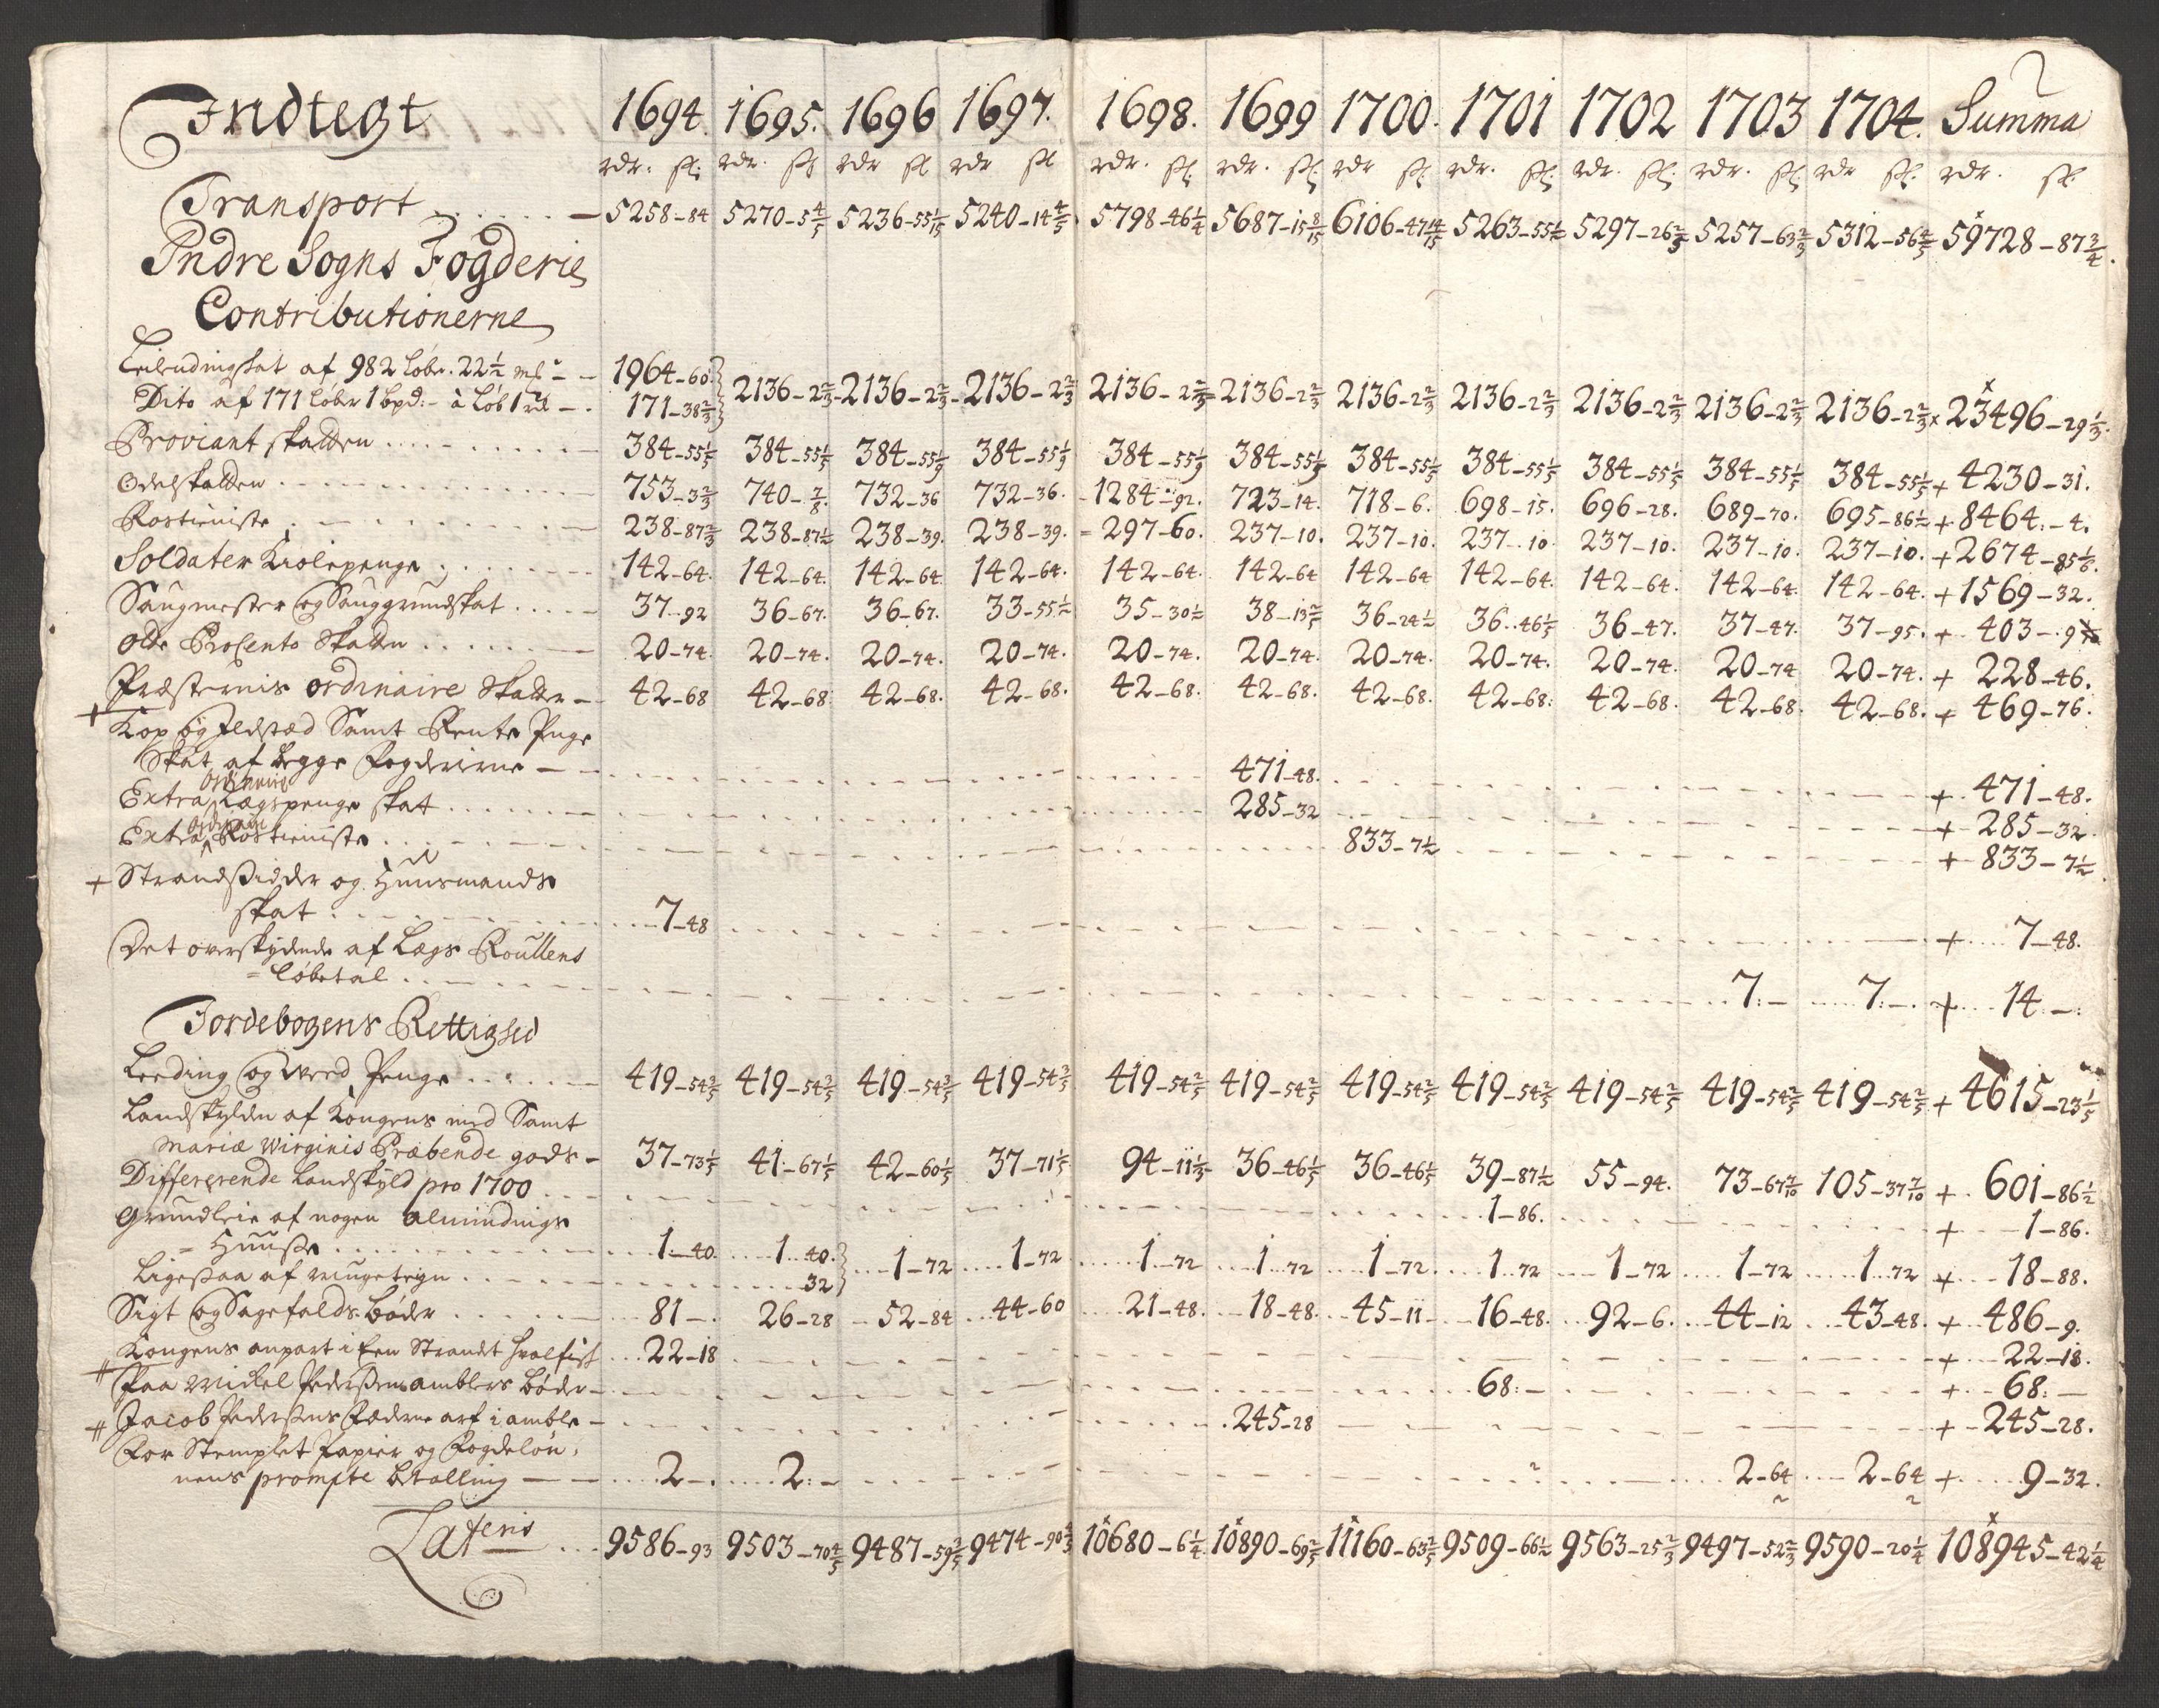 Indtegt 1694. 1695. 1696 1697. 1698. 1699 1700. 1701 1702 1703 1704. Summa
rdr. sl. rdr. sl rdr sl rdr sl rdr. sl. rdr. sl. rdr sl. rdr. sl. rdr. sl. rdr. sl. rdr sl. rdr. sl.
Transport 5258-84 5270-5 4/5 5236-55 1/15 5240-14 4/5 5798-46 1/4 5687-15 8/15 6106-47 14/15 5263-55 1/2 5297-26 2/3 5257-63 2/3 5312-56 4/5 59728-87 3/4.
Indre Sogns Fogderie
Contributionerne
Leilendingskat af 982 løbr. 22 1/2 mk 1964-60
Dito af 171 løber 1 bpd: à løb 1 rd 171-38 2/3 2136-2 2/3 2136-2 2/3 2136-2 2/3 2136-2 2/3 2136-2 2/3 2136-2 2/3 2136-2 2/3 2136-2 2/3 2136-2 2/3 2136-2 2/3 x 23496-29 1/3.
Proviant skatten 384-55 1/5 384-55 1/5 384-55 1/9 384-55 1/9 384-55 1/9 384-55 1/5 384-55 1/5 384-55 1/5 384-55 1/5 384-55 1/5 384-55 1/5 + 4230-31.
Odelskatten 753-3 2/3 740-7/8. 732-36 732-36. 1284-92. 723-14. 718-6. 698-15. 696-28. 689-70. 695-86 1/2 + 8464.-4.
Rostieniste 238-87 2/3 238-87 1/2 238-39. 238-39. 297-60. 237-10. 237-10. 237-10 237-10. 237-10. 237-10. + 2674-85 1/6.
Soldater Kiolepenge 142-64. 142-64. 142-64 142-64. 142-64. 142-64 142-64 142-64. 142-64. 142-64. 142-64. + 1569-32.
Saugmester og Sauggrundskat 37-92 36-67. 36-67. 33-55 1/2 35-30 1/2 38-13 2/5 36-24 1/2 36-46 1/5 36-47. 37-47. 37-95. + 403-9
Odd Prosento Skatten 20-74. 20-74. 20-74. 20-74. 20-74. 20-74. 20-74. 20-74. 20-74. 20-74 20-74. + 228-46.
Præsternis ordinaire Skatter 42-68 42-68 42-68. 42-68. 42-68. 42-68. 42-68. 42-68. 42-68. 42-68. 42-68. + 469-76.
+ Kop og Ildsted Samt Rente Penge
Skat af begge Fogderierne 471-48. + 471-48.
Extra Ordinaire Lægspenge skat 285-32 + 285-32.
Extra Ordinaire Rostieniste 833-7 1/2 + 833-7 1/2
+ Strandsidder og Huusmands
skat 7-48 + 7-48.
Det overskydende af Lægs Roullens
= løbetal 7:- 7:- + 14.-:
Jordebogens Rettighed
Leeding og Wred Penge 419-54 2/5 419-54 2/5 419-54 2/5 419-54 2/5 419-54 2/5 419-54 2/5 419-54 2/5 419-54 2/5 419-54 2/5 419-54 2/5 419-54 2/5 + 4615-23 1/5
Landskylden af Kongens med Samt
Mariæ Wirginis Præbende gods 37-73 1/5 41-67 1/5 42-60 1/5 37-71 1/5 94-11 1/3 36-46 1/5 36-46 1/5 39-87 1/2 55-94. 73-67 7/10 105-37 7/10 + 601-86 1/2
Differerende Landskyld pro 1700 1-86. + 1-86.
Grundleie af nogen Almindnigs
= Huuse 1-40 1-40. 1-72 1-72 1-72 1-72 1-72 1-72 1-72 1-72 1-72 + 18-88.
Ligesaa af 32
Sigt og Sagefalds bøder 81- 26-28 52-84 44-60 21-48. 18-48. 45-11 16-48. 92-6. 44-12 43-48. + 486-9.
Kongens anpart i Een Strandt hvalfisk 22-18 + 22-18.
+ Paa Mickel Pedersen amblers bøder 68:- + 68:-
+ Jacob Pedersens Fæderne arf i amble 245-28 + 245-28.
For Stemplet Papier og Fogdeløn:
nens prompte betalling 2- 2:- 2-64 2-64 + 9-32.
Lateris 9586-93 9503-70 4/5 9487-59 2/5 9474-90 4/5 10680-6 1/4 10890-69 2/5 11160-63 2/5 9509-66 1/2 9563-25 2/3 9497-52 2/3 9590-20 1/4 108945-42 1/4